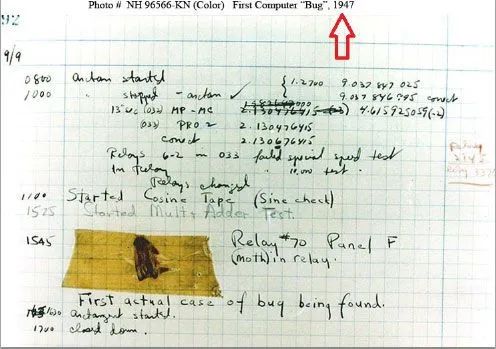 Photo # NH 96566-KN (Color) First Computer "Bug", 1947
92
9/9
0800 antan started
1000 " stopped - antan ✓ { 1.2700 9.037 847 025
9.037 846 995 conect
13"uc (032) MP - MC 2.130476415 4.615925059(-2)
(033) PRO 2 2.130476415
conect 2.130676415
Relays 6-2 in 033 failed special speed test
In Relay " 10.000 test .
Relays changed
1100 Started Cosine Tape (Sine check)
1525 Started Mult + Adder Test.
1545 Relay #70 Panel F
(Moth) in relay.
First actual case of bug being found.
1630 antangent started.
1700 closed down .